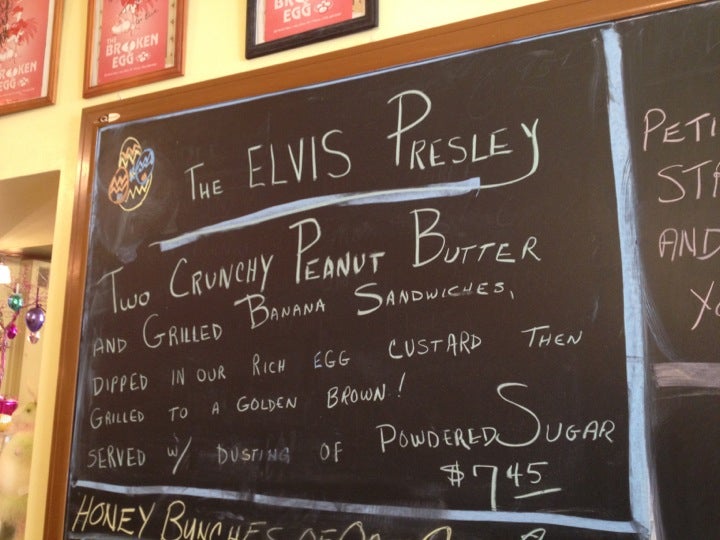 THE BROKEN EGG
BROKEN EGG
BROKEN EGG
THE ELVIS PRESLEY
TWO CRUNCHY PEANUT BUTTER
AND GRILLED BANANA SANDWICHES,
DIPPED IN OUR RICH EGG CUSTARD THEN
GRILLED TO A GOLDEN BROWN!
SERVED W/ DUSTING OF POWDERED SUGAR
$7.45
HONEY BUNCHES OF
PETI
STA
AND
YO